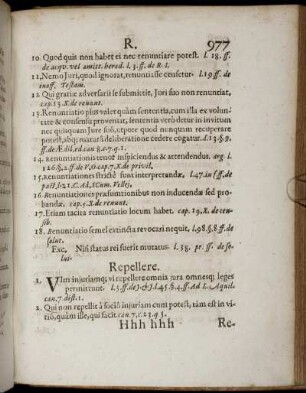 R. 977
10. Quod quis non habet ei nec renuntiare potest. l. 18. ff.
de acqu. vel amitt. hered. l. 3. ff. de R. I.
11. Nemo Juri, quod ignorat, renuntiasse censetur. l. 19 ff. de
inoff. Testam.
12. Qui gratiæ adversarii se submittit, Juri suo non renuntiat,
cap. 13. X de renunt.
13. Renunciatio plus valet quàm sententia, cum illa ex volun-
tate & consensu proveniat, sententia verò detur in invitum
nec quisquam Jure suo, et pote quod nunquam recuperare
potest, absq; matura deliberatione cedere cogatur.
14. Renuntiationis tenor inspiciendus & attendendus. arg. l.
15. Renuntiationes strictè sunt interpretandæ. l. 47 in f. ff. de
16. Renuntiationes præsumtionibus non inducendæ sed pro-
bandæ. cap. 5. X de renunt.
17. Etiam tacita renuntiatio locum habet. cap. 19. X. de cen-
sib.
18. Renuntiatio semel extincta revocari nequit. l. 98. §. 8. ff. de
solut.
Exc. Nisi status rei fuerit mutatus. l. 38. pr. ff. de so-
lut.
Repellere.
1. VIm injuriamq; vi repellere omnia jura omnesq; leges
permittunt. l. 3. ff. de J. & J. l. 45. §. 4. ff. Ad L. Aquil.
can. 7. dist. 1.
2. Qui non repellit à socio injuriam cum potest, tàm est in vi-
tio, quàm ille, qui facit can. 7. c. 23. q. 3.
Hhh hhh Re-